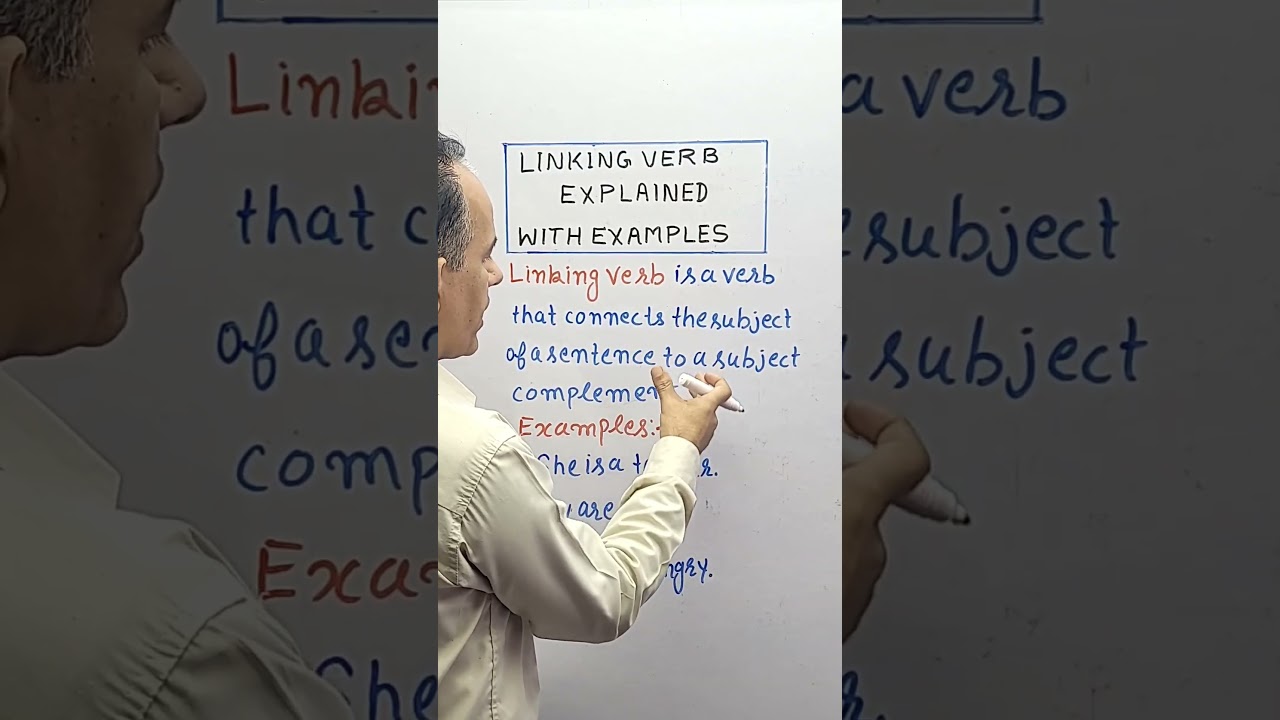 LINKING VERB
EXPLAINED
WITH EXAMPLES
Linking verb is a verb
that connects the subject
of a sentence to a subject
Examples:-
She is a
are